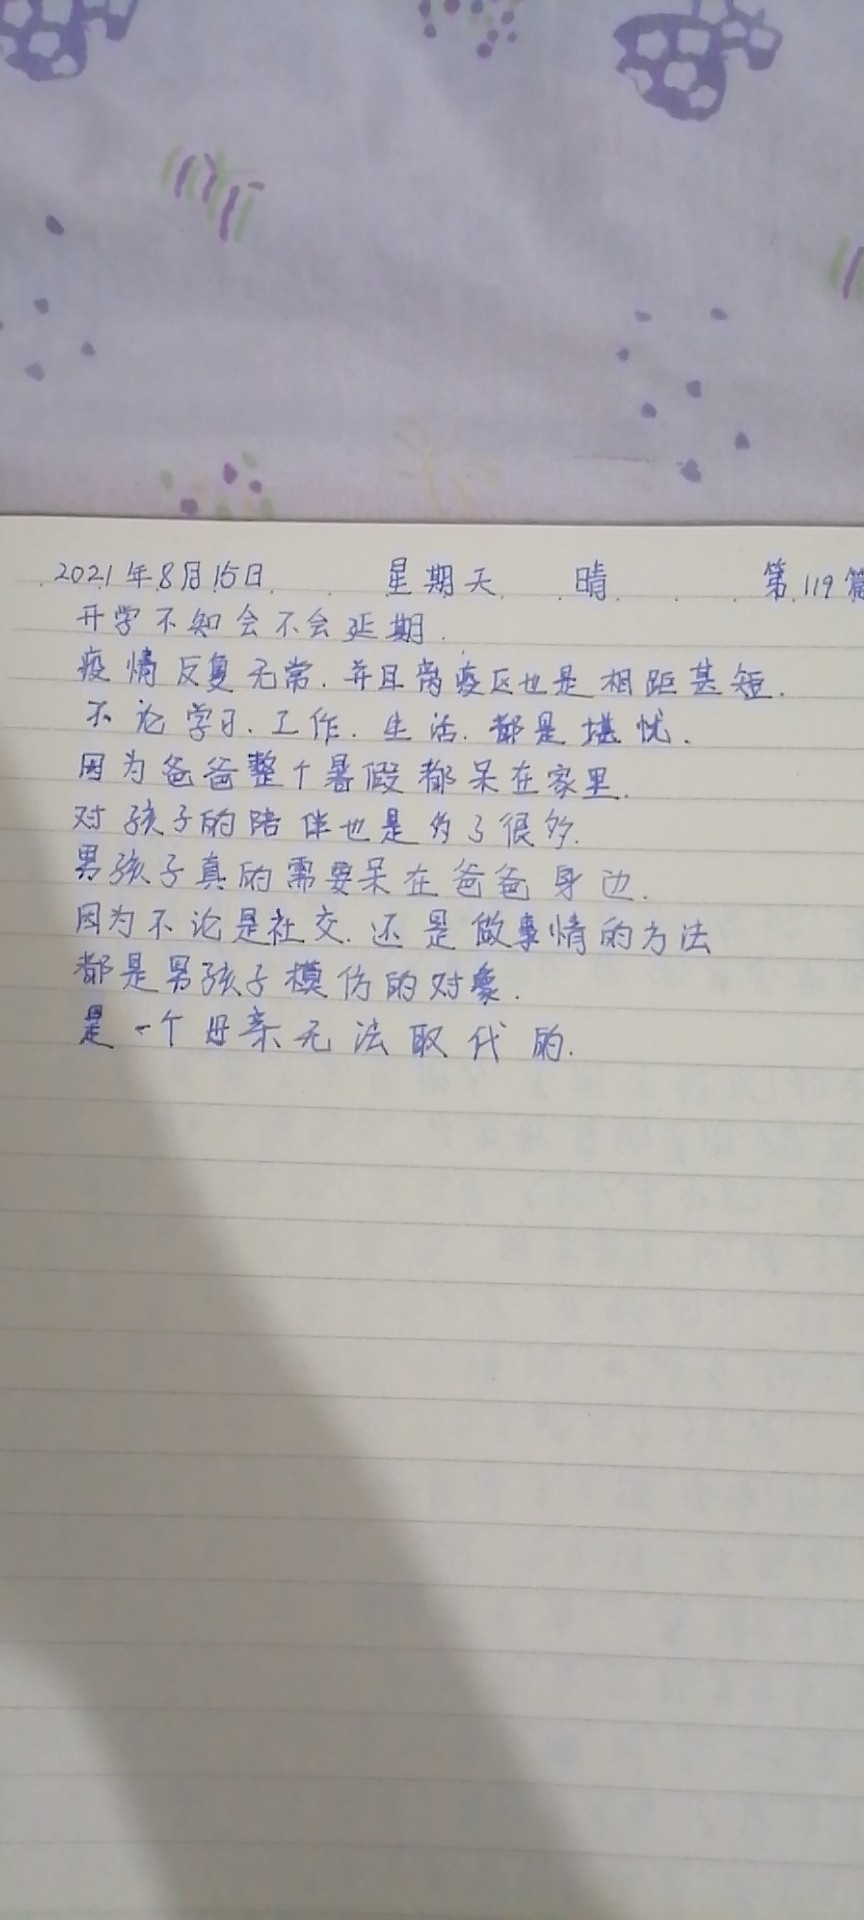 2021年8月15日 星期天 晴 第119篇
开学不知会不会延期.
疫情反复无常.并且离疫区也是相距甚短.
不论学习.工作.生活.都是堪忧.
因为爸爸整个暑假都呆在家里.
对孩子的陪伴也是多了很多.
男孩子真的需要呆在爸爸身边.
因为不论是社交.还是做事情的方法
都是男孩子模仿的对象.
是一个母亲无法取代的.